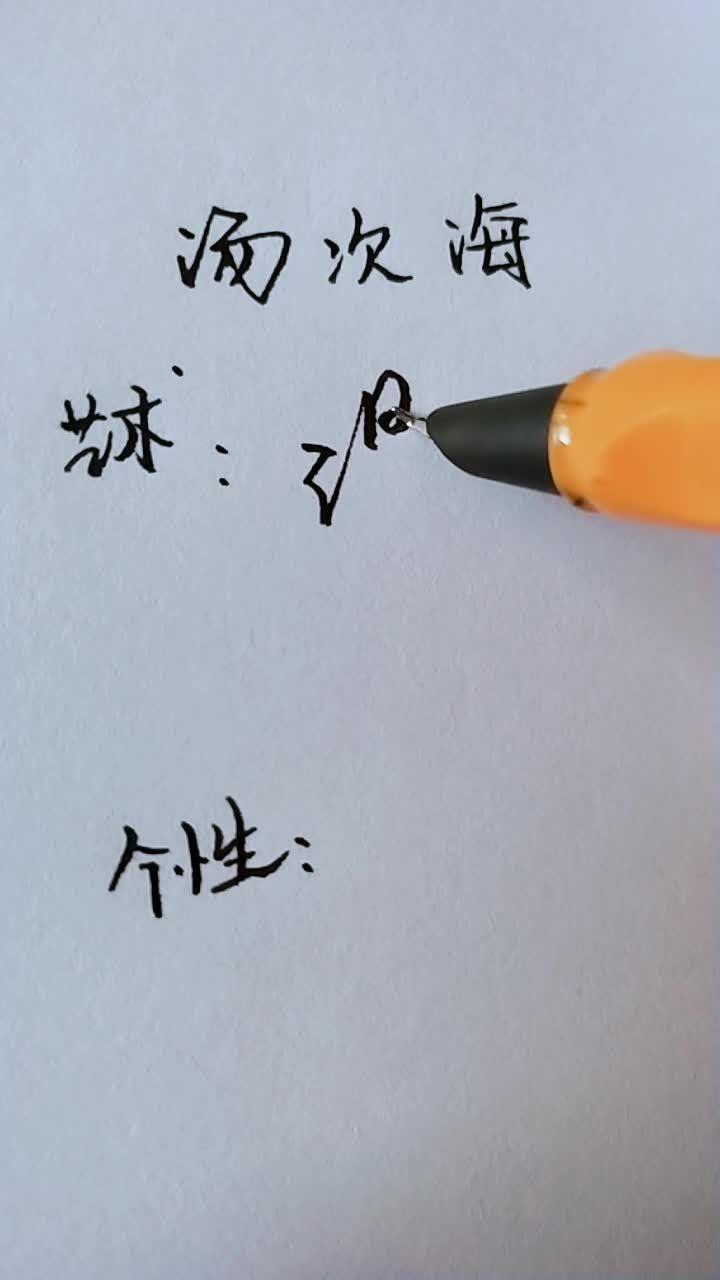 汤次海
艺术：
个性：